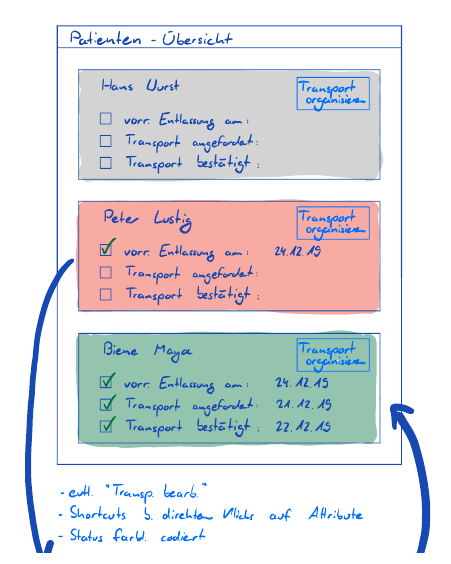 Patienten - Übersicht
Hans Wurst
Transport
organisieren
vorr. Entlassung am:
Transport angefordet:
Transport bestätigt:
Peter Lustig
Transport
organisieren
vorr. Entlassung am: 24.12.19
Transport angefordet:
Transport bestätigt:
Biene Maya
Transport
organisieren
vorr. Entlassung am: 24.12.19
Transport angefordet: 21.12.19
Transport bestätigt: 22.12.19
- evtl. "Transp. bearb."
- Shortcuts b. direkten Klicks auf Attribute
- Status farbl. codiert